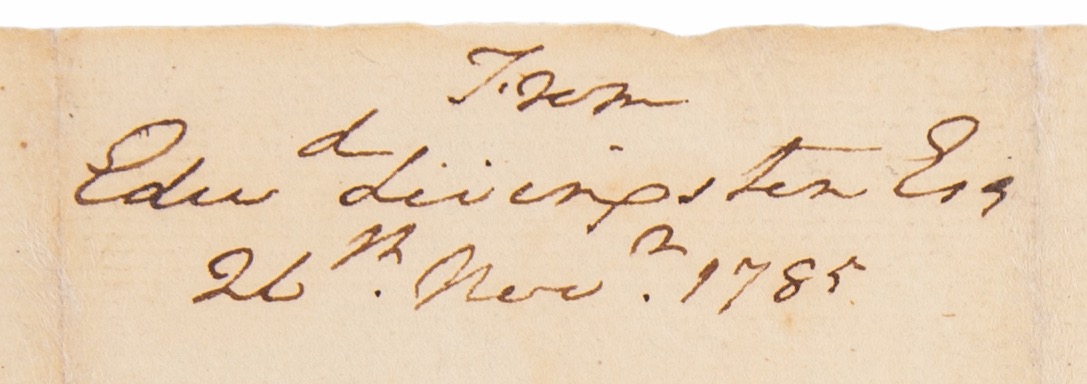 From
Edwd Livingston Esq
26th. Novr. 1785